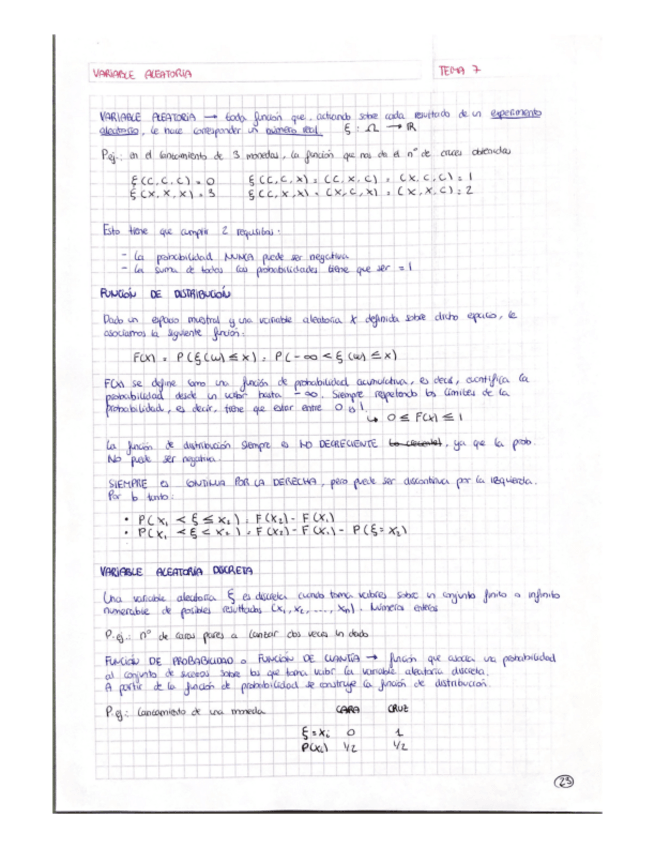 VARIABLE ALEATORIA
TEMA 7
VARIABLE ALEATORIA → toda función que, actuando sobre cada resultado de un experimento
aleatorio, le hace corresponder un número real. ξ : Ω → ℝ
P.ej.: en el lanzamiento de 3 monedas, la función que nos da el nº de cruces obtenidas
ξ(C,C,C) = 0 ξ(C,C,X) = (C,X,C) = (X,C,C) = 1
ξ(X,X,X) = 3 ξ(C,X,X) = (X,C,X) = (X,X,C) = 2
Esto tiene que cumplir 2 requisitos:
- La probabilidad NUNCA puede ser negativa
- La suma de todas las probabilidades tiene que ser = 1
FUNCIÓN DE DISTRIBUCIÓN
Dado un espacio muestral y una variable aleatoria X definida sobre dicho espacio, le
asociamos la siguiente función:
F(x) = P(ξ(ω) ≤ x) = P(-∞ < ξ(ω) ≤ x)
F(x) se define como una función de probabilidad acumulativa, es decir, cuantifica la
probabilidad desde un valor hasta -∞. Siempre respetando los límites de la
probabilidad, es decir, tiene que estar entre 0 y 1.
↳ 0 ≤ F(x) ≤ 1
La función de distribución siempre es NO DECRECIENTE, ya que la prob.
No puede ser negativa.
SIEMPRE es CONTINUA POR LA DERECHA, pero puede ser discontinua por la izquierda.
Por lo tanto:
• P(x₁ < ξ ≤ x₂) = F(x₂) - F(x₁)
• P(x₁ < ξ < x₂) = F(x₂) - F(x₁) - P(ξ = x₂)
VARIABLE ALEATORIA DISCRETA
Una variable aleatoria ξ es discreta cuando toma valores sobre un conjunto finito o infinito
numerable de posibles resultados (x₁, x₂, ..., xₙ). Números enteros
P.ej.: nº de caras pares a lanzar dos veces un dado
FUNCIÓN DE PROBABILIDAD o FUNCIÓN DE CUANTÍA → función que asocia una probabilidad
al conjunto de sucesos sobre los que toma valor la variable aleatoria discreta.
A partir de la función de probabilidad se construye la función de distribución.
P.ej: Lanzamiento de una moneda CARA CRUZ
ξ = xᵢ 0 1
P(xᵢ) 1/2 1/2
23